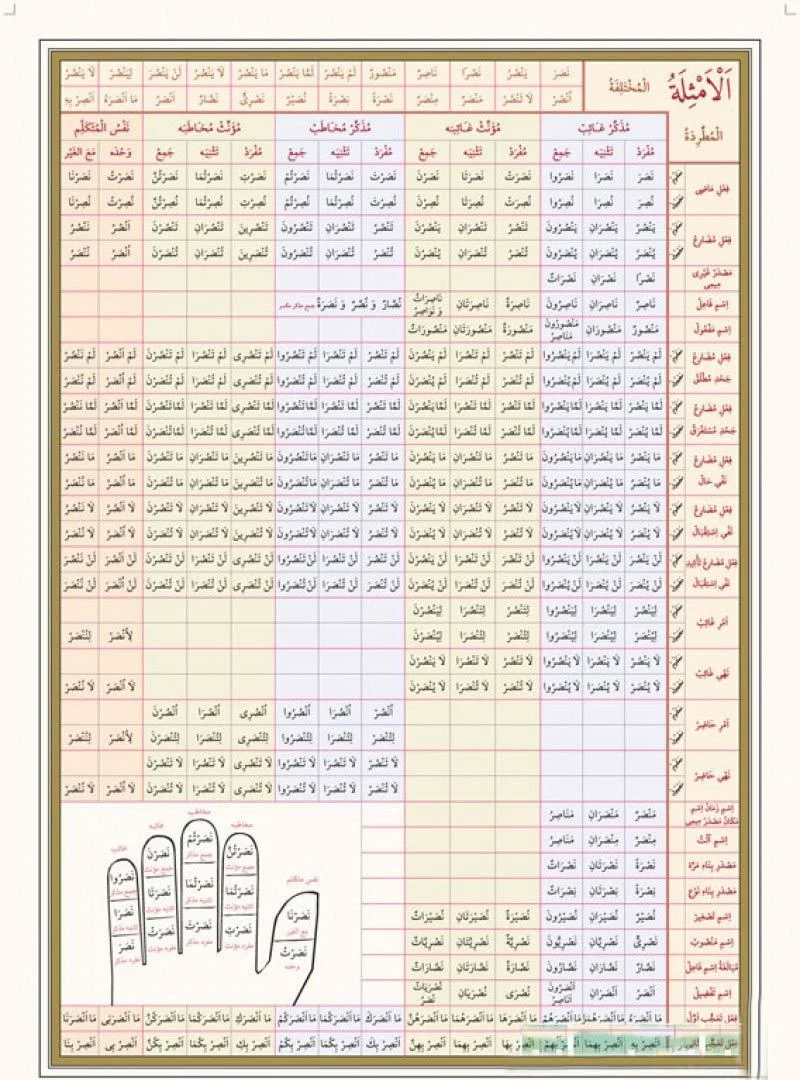 اَلْاَمْثِلَةُ
اَلْمُخْتَلِفَةُ
نَصَرَ يَنْصُرُ نَصْرًا نَاصِرٌ مَنْصُورٌ لَمْ يَنْصُرْ لَمَّا يَنْصُرْ مَا يَنْصُرُ لَا يَنْصُرُ لَنْ يَنْصُرَ لِيَنْصُرْ لَا يَنْصُرْ
اُنْصُرْ لَا تَنْصُرْ مَنْصَرٌ مِنْصَرٌ نَصْرَةً نِصْرَةً نُصَيْرٌ نَصْرِىٌّ نَصَّارٌ اَنْصَرُ مَا اَنْصَرَهُ اَنْصِرْ بِهِ
اَلْمُطَّرِدَةُ
مُذَكَّرْ غَائِبْ مُؤَنَّثْ غَائِبَه مُذَكَّرْ مُخَاطَبْ مُؤَنَّثْ مُخَاطَبَه نَفْسُ الْمُتَكَلِّمِ
مُفْرَدْ تَثْنِيَه جَمِعْ مُفْرَدْ تَثْنِيَه جَمِعْ مُفْرَدْ تَثْنِيَه جَمِعْ مُفْرَدْ تَثْنِيَه جَمِعْ وَحْدَه مَعَ الْغَيْرِ
فِعْلِ مَاضِى
نَصَرَ نَصَرَا نَصَرُوا نَصَرَتْ نَصَرَتَا نَصَرْنَ نَصَرْتَ نَصَرْتُمَا نَصَرْتُمْ نَصَرْتِ نَصَرْتُمَا نَصَرْتُنَّ نَصَرْتُ نَصَرْنَا
نُصِرَ نُصِرَا نُصِرُوا نُصِرَتْ نُصِرَتَا نُصِرْنَ نُصِرْتَ نُصِرْتُمَا نُصِرْتُمْ نُصِرْتِ نُصِرْتُمَا نُصِرْتُنَّ نُصِرْتُ نُصِرْنَا
فِعْلِ مُضَارِعْ
يَنْصُرُ يَنْصُرَانِ يَنْصُرُونَ تَنْصُرُ تَنْصُرَانِ يَنْصُرْنَ تَنْصُرُ تَنْصُرَانِ تَنْصُرُونَ تَنْصُرِينَ تَنْصُرَانِ تَنْصُرْنَ اَنْصُرُ نَنْصُرُ
يُنْصَرُ يُنْصَرَانِ يُنْصَرُونَ تُنْصَرُ تُنْصَرَانِ يُنْصَرْنَ تُنْصَرُ تُنْصَرَانِ تُنْصَرُونَ تُنْصَرِينَ تُنْصَرَانِ تُنْصَرْنَ اُنْصَرُ نُنْصَرُ
مَصْدَرْ غَيْرِى مِيمِى
نَصْرًا نَصْرَانِ نَصْرَاتٌ
اِسْمِ فَاعِلْ
نَاصِرٌ نَاصِرَانِ نَاصِرُونَ نَاصِرَةٌ نَاصِرَتَانِ نَاصِرَاتٌ وَ نَوَاصِرُ نُصَّارٌ وَ نُصَّرٌ وَ نَصَرَةٌ جمع مذكر مكسر
اِسْمِ مَفْعُولْ
مَنْصُورٌ مَنْصُورَانِ مَنْصُورُونَ مَنَاصِرُ مَنْصُورَةٌ مَنْصُورَتَانِ مَنْصُورَاتٌ
فِعْلِ مُضَارِعْ جَحْدِ مُطْلَقْ
لَمْ يَنْصُرْ لَمْ يَنْصُرَا لَمْ يَنْصُرُوا لَمْ تَنْصُرْ لَمْ تَنْصُرَا لَمْ يَنْصُرْنَ لَمْ تَنْصُرْ لَمْ تَنْصُرَا لَمْ تَنْصُرُوا لَمْ تَنْصُرِى لَمْ تَنْصُرَا لَمْ تَنْصُرْنَ لَمْ اَنْصُرْ لَمْ نَنْصُرْ
لَمْ يُنْصَرْ لَمْ يُنْصَرَا لَمْ يُنْصَرُوا لَمْ تُنْصَرْ لَمْ تُنْصَرَا لَمْ يُنْصَرْنَ لَمْ تُنْصَرْ لَمْ تُنْصَرَا لَمْ تُنْصَرُوا لَمْ تُنْصَرِى لَمْ تُنْصَرَا لَمْ تُنْصَرْنَ لَمْ اُنْصَرْ لَمْ نُنْصَرْ
فِعْلِ مُضَارِعْ جَحْدِ مُسْتَغْرَقْ
لَمَّا يَنْصُرْ لَمَّا يَنْصُرَا لَمَّا يَنْصُرُوا لَمَّا تَنْصُرْ لَمَّا تَنْصُرَا لَمَّا يَنْصُرْنَ لَمَّا تَنْصُرْ لَمَّا تَنْصُرَا لَمَّا تَنْصُرُوا لَمَّا تَنْصُرِى لَمَّا تَنْصُرَا لَمَّا تَنْصُرْنَ لَمَّا اَنْصُرْ لَمَّا نَنْصُرْ
لَمَّا يُنْصَرْ لَمَّا يُنْصَرَا لَمَّا يُنْصَرُوا لَمَّا تُنْصَرْ لَمَّا تُنْصَرَا لَمَّا يُنْصَرْنَ لَمَّا تُنْصَرْ لَمَّا تُنْصَرَا لَمَّا تُنْصَرُوا لَمَّا تُنْصَرِى لَمَّا تُنْصَرَا لَمَّا تُنْصَرْنَ لَمَّا اُنْصَرْ لَمَّا نُنْصَرْ
فِعْلِ مُضَارِعْ نَفْىِ حَالْ
مَا يَنْصُرُ مَا يَنْصُرَانِ مَا يَنْصُرُونَ مَا تَنْصُرُ مَا تَنْصُرَانِ مَا يَنْصُرْنَ مَا تَنْصُرُ مَا تَنْصُرَانِ مَا تَنْصُرُونَ مَا تَنْصُرِينَ مَا تَنْصُرَانِ مَا تَنْصُرْنَ مَا اَنْصُرُ مَا نَنْصُرُ
مَا يُنْصَرُ مَا يُنْصَرَانِ مَا يُنْصَرُونَ مَا تُنْصَرُ مَا تُنْصَرَانِ مَا يُنْصَرْنَ مَا تُنْصَرُ مَا تُنْصَرَانِ مَا تُنْصَرُونَ مَا تُنْصَرِينَ مَا تُنْصَرَانِ مَا تُنْصَرْنَ مَا اُنْصَرُ مَا نُنْصَرُ
فِعْلِ مُضَارِعْ نَفْىِ اِسْتِقْبَالْ
لَا يَنْصُرُ لَا يَنْصُرَانِ لَا يَنْصُرُونَ لَا تَنْصُرُ لَا تَنْصُرَانِ لَا يَنْصُرْنَ لَا تَنْصُرُ لَا تَنْصُرَانِ لَا تَنْصُرُونَ لَا تَنْصُرِينَ لَا تَنْصُرَانِ لَا تَنْصُرْنَ لَا اَنْصُرُ لَا نَنْصُرُ
لَا يُنْصَرُ لَا يُنْصَرَانِ لَا يُنْصَرُونَ لَا تُنْصَرُ لَا تُنْصَرَانِ لَا يُنْصَرْنَ لَا تُنْصَرُ لَا تُنْصَرَانِ لَا تُنْصَرُونَ لَا تُنْصَرِينَ لَا تُنْصَرَانِ لَا تُنْصَرْنَ لَا اُنْصَرُ لَا نُنْصَرُ
فِعْلِ مُضَارِعْ تَأْكِيدِ نَفْىِ اِسْتِقْبَالْ
لَنْ يَنْصُرَ لَنْ يَنْصُرَا لَنْ يَنْصُرُوا لَنْ تَنْصُرَ لَنْ تَنْصُرَا لَنْ يَنْصُرْنَ لَنْ تَنْصُرَ لَنْ تَنْصُرَا لَنْ تَنْصُرُوا لَنْ تَنْصُرِى لَنْ تَنْصُرَا لَنْ تَنْصُرْنَ لَنْ اَنْصُرَ لَنْ نَنْصُرَ
لَنْ يُنْصَرَ لَنْ يُنْصَرَا لَنْ يُنْصَرُوا لَنْ تُنْصَرَ لَنْ تُنْصَرَا لَنْ يُنْصَرْنَ لَنْ تُنْصَرَ لَنْ تُنْصَرَا لَنْ تُنْصَرُوا لَنْ تُنْصَرِى لَنْ تُنْصَرَا لَنْ تُنْصَرْنَ لَنْ اُنْصَرَ لَنْ نُنْصَرَ
اَمْرِ غَائِبْ
لِيَنْصُرْ لِيَنْصُرَا لِيَنْصُرُوا لِتَنْصُرْ لِتَنْصُرَا لِيَنْصُرْنَ
لِيُنْصَرْ لِيُنْصَرَا لِيُنْصَرُوا لِتُنْصَرْ لِتُنْصَرَا لِيُنْصَرْنَ لِاُنْصَرْ لِنُنْصَرْ
نَهْىِ غَائِبْ
لَا يَنْصُرْ لَا يَنْصُرَا لَا يَنْصُرُوا لَا تَنْصُرْ لَا تَنْصُرَا لَا يَنْصُرْنَ
لَا يُنْصَرْ لَا يُنْصَرَا لَا يُنْصَرُوا لَا تُنْصَرْ لَا تُنْصَرَا لَا يُنْصَرْنَ لَا اُنْصَرْ لَا نُنْصَرْ
اَمْرِ حَاضِرْ
اُنْصُرْ اُنْصُرَا اُنْصُرُوا اُنْصُرِى اُنْصُرَا اُنْصُرْنَ
لِتُنْصَرْ لِتُنْصَرَا لِتُنْصَرُوا لِتُنْصَرِى لِتُنْصَرَا لِتُنْصَرْنَ لِاُنْصَرْ لِنُنْصَرْ
نَهْىِ حَاضِرْ
لَا تَنْصُرْ لَا تَنْصُرَا لَا تَنْصُرُوا لَا تَنْصُرِى لَا تَنْصُرَا لَا تَنْصُرْنَ
لَا تُنْصَرْ لَا تُنْصَرَا لَا تُنْصَرُوا لَا تُنْصَرِى لَا تُنْصَرَا لَا تُنْصَرْنَ لَا اُنْصَرْ لَا نُنْصَرْ
اِسْمِ زَمَانْ اِسْمِ مَكَانْ مَصْدَرْ مِيمِى
مَنْصَرٌ مَنْصَرَانِ مَنَاصِرُ
اِسْمِ آلَتْ
مِنْصَرٌ مِنْصَرَانِ مَنَاصِرُ
مَصْدَرْ بِنَاءِ مَرَّه
نَصْرَةً نَصْرَتَانِ نَصَرَاتٌ
مَصْدَرْ بِنَاءِ نَوْعْ
نِصْرَةً نِصْرَتَانِ نِصَرَاتٌ
اِسْمِ تَصْغِيرْ
نُصَيْرٌ نُصَيْرَانِ نُصَيْرُونَ نُصَيْرَةٌ نُصَيْرَتَانِ نُصَيْرَاتٌ
اِسْمِ مَنْسُوبْ
نَصْرِىٌّ نَصْرِيَّانِ نَصْرِيُّونَ نَصْرِيَّةٌ نَصْرِيَّتَانِ نَصْرِيَّاتٌ
مُبَالَغَةُ اِسْمِ فَاعِلْ
نَصَّارٌ نَصَّارَانِ نَصَّارُونَ نَصَّارَةٌ نَصَّارَتَانِ نَصَّارَاتٌ
اِسْمِ تَفْضِيلْ
اَنْصَرُ اَنْصَرَانِ اَنْصَرُونَ اَنَاصِرُ نُصْرَى نُصْرَيَانِ نُصْرَيَاتٌ نُصَرٌ
غائب غائبه مخاطب مخاطبه نفس متكلم
نَصَرُوا نَصَرْنَ نَصَرْتُمْ نَصَرْتُنَّ نَصَرْنَا
جمع مذكر جمع مؤنث جمع مذكر جمع مؤنث مع الغير
نَصَرَا نَصَرَتَا نَصَرْتُمَا نَصَرْتُمَا نَصَرْتُ
تثنيه مذكر تثنيه مؤنث تثنيه مذكر تثنيه مؤنث وحده
نَصَرَ نَصَرَتْ نَصَرْتَ نَصَرْتِ
مفرد مذكر مفرد مؤنث مفرد مذكر مفرد مؤنث
فِعْلِ تَعَجُّبِ اَوَّلْ
مَا اَنْصَرَهُ مَا اَنْصَرَهُمَا مَا اَنْصَرَهُمْ مَا اَنْصَرَهَا مَا اَنْصَرَهُمَا مَا اَنْصَرَهُنَّ مَا اَنْصَرَكَ مَا اَنْصَرَكُمَا مَا اَنْصَرَكُمْ مَا اَنْصَرَكِ مَا اَنْصَرَكُمَا مَا اَنْصَرَكُنَّ مَا اَنْصَرَنِى مَا اَنْصَرَنَا
فِعْلِ تَعَجُّبِ
اَنْصِرْ بِهِ اَنْصِرْ بِهِمَا اَنْصِرْ بِهِمْ اَنْصِرْ بِهَا اَنْصِرْ بِهِمَا اَنْصِرْ بِهِنَّ اَنْصِرْ بِكَ اَنْصِرْ بِكُمَا اَنْصِرْ بِكُمْ اَنْصِرْ بِكِ اَنْصِرْ بِكُمَا اَنْصِرْ بِكُنَّ اَنْصِرْ بِى اَنْصِرْ بِنَا